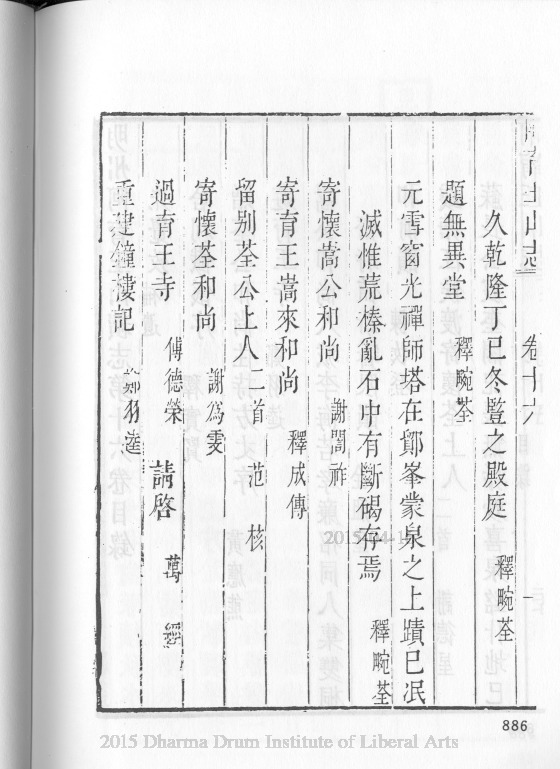 育王山志 卷十六 一
久乾隆丁巳冬豎之殿庭 釋畹荃
題無異堂 釋畹荃
元雪窗光禪師塔在鄮峯蒙泉之上蹟已泯
滅惟荒榛亂石中有斷碣存焉 釋畹荃
寄懷嵩公和尚 謝闇祚
寄育王嵩來和尚 釋成傳
留别荃公上人二首 范核
寄懷荃和尚 謝為雯
過育王寺 傅德榮 請啓 萬經
重建鐘樓記 鄭羽逵
886
2015-04-1
2015 Dharma Drum Institute of Liberal Arts